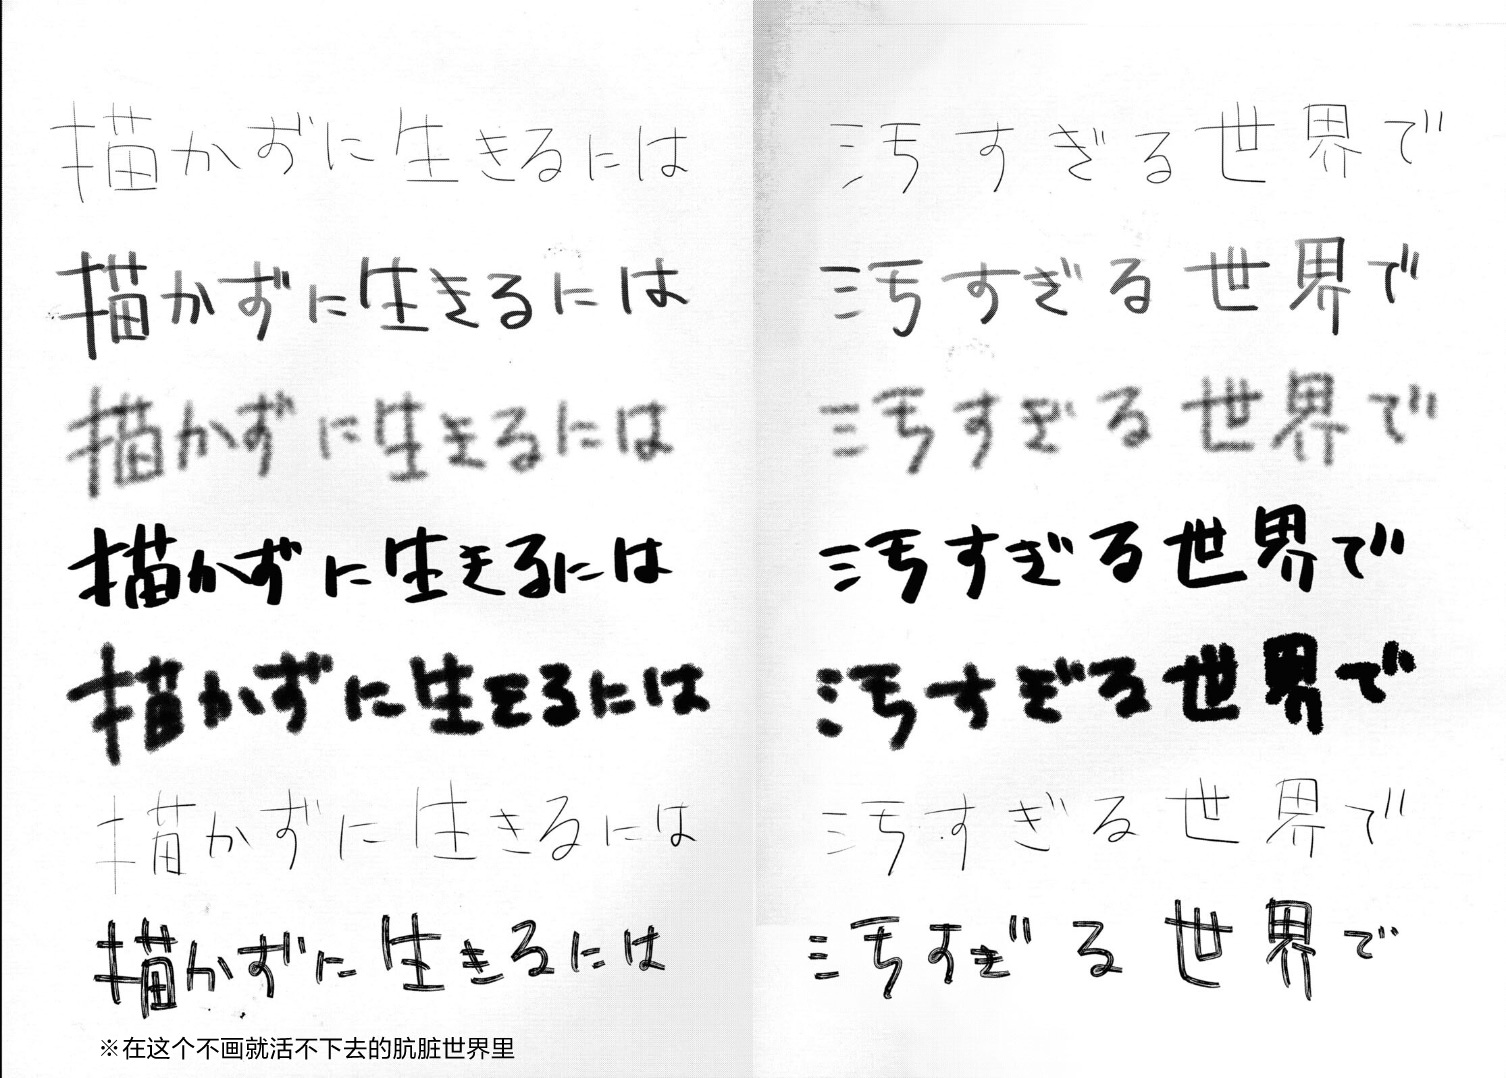 描かずに生きるには 汚すぎる世界で
描かずに生きるには 汚すぎる世界で
描かずに生きるには 汚すぎる世界で
描かずに生きるには 汚すぎる世界で
描かずに生きるには 汚すぎる世界で
描かずに生きるには 汚すぎる世界で
描かずに生きるには 汚すぎる世界で
※在这个不画就活不下去的肮脏世界里